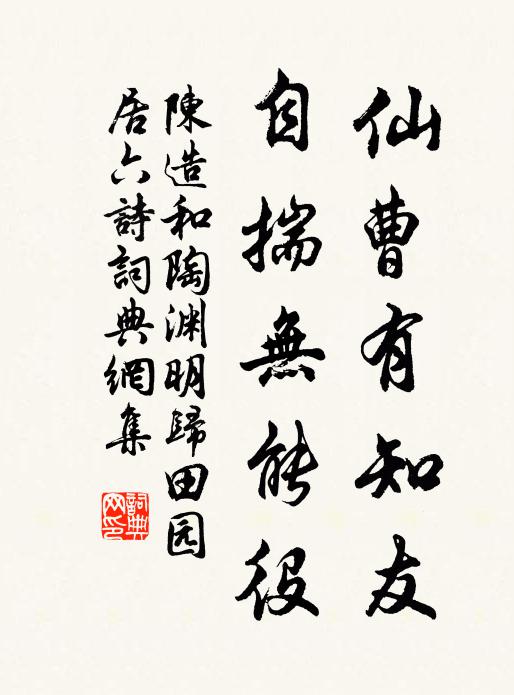 仙曹有知友
自揣無能役
陳造和陶渊明歸田园
居六詩詞典網集
詞典
网印